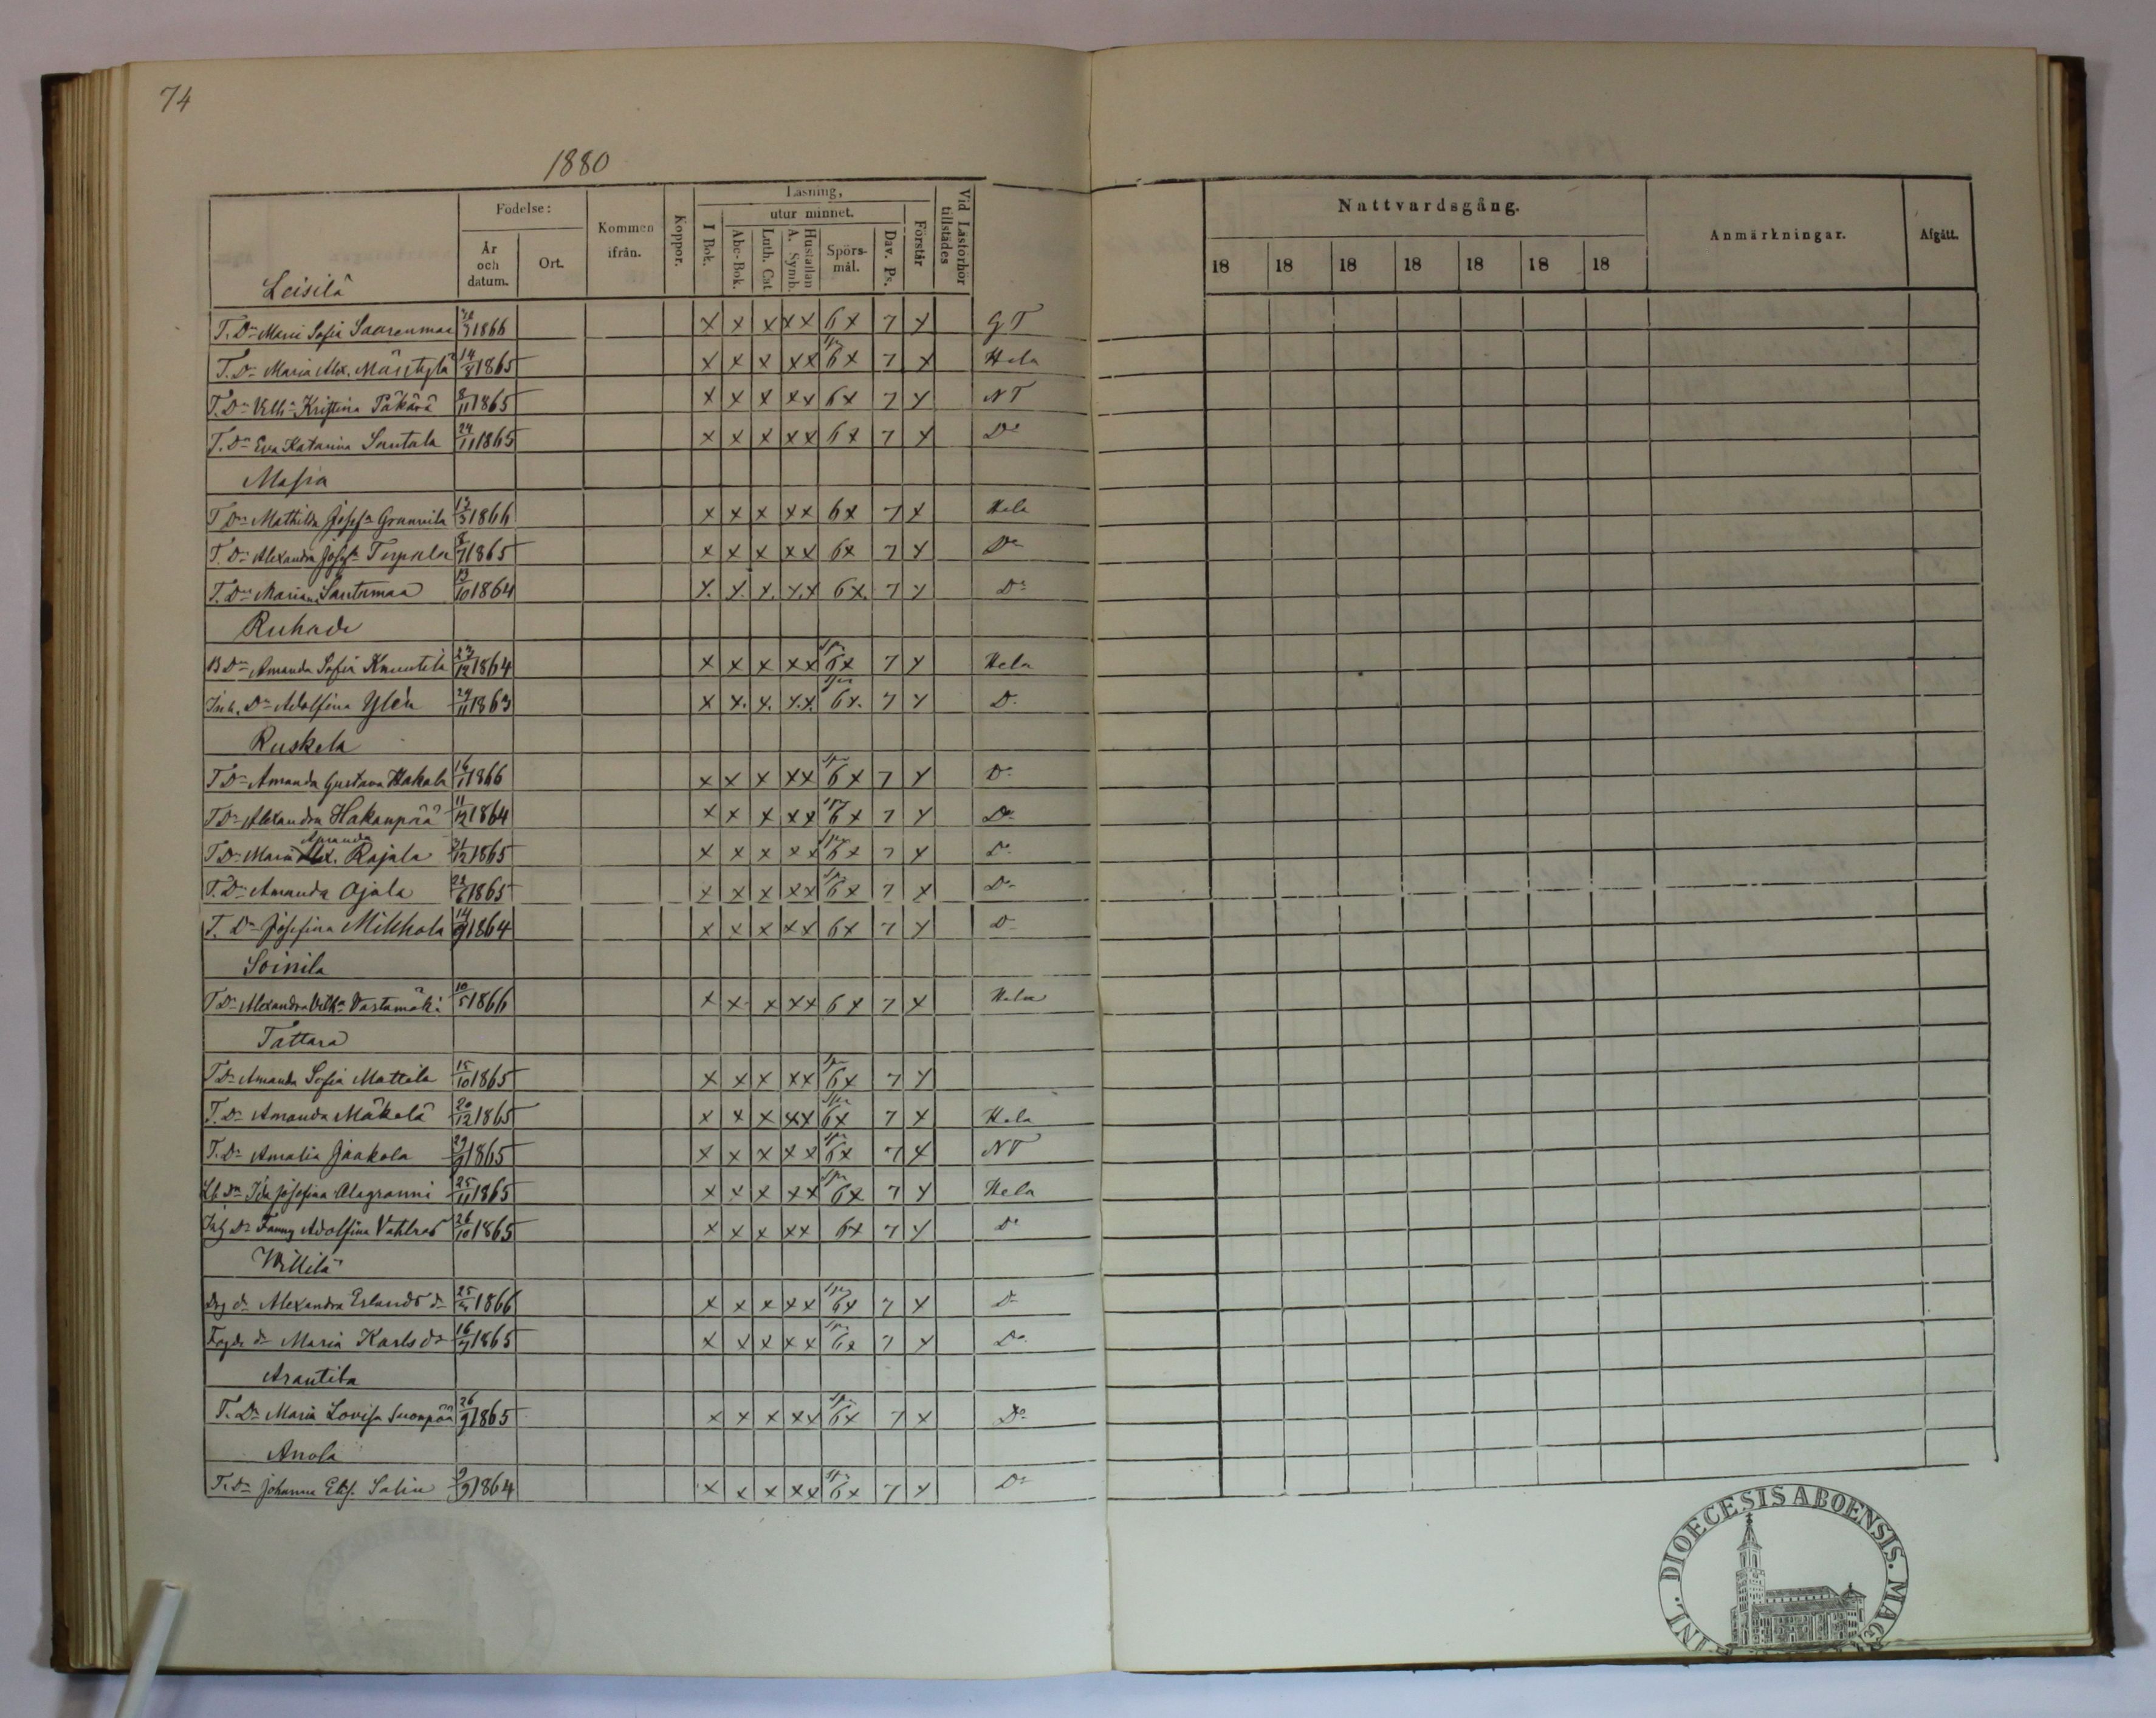 74
1880
Födelse:
Kommen ifrån.
Koppor.
Läsning,
utur minnet.
Vid Läsförhör tillstädes
År och datum.
Ort.
I Bok.
Abc-Bok.
Luth. Cat.
Hustaflan A. Symb.
Spörsmål.
Dav. Ps.
Förstår
Nattvardsgång.
Anmärkningar.
Afgått.
18 18 18 18 18 18 18
Leisilä
T. Dr Maria Sofia Saarenmaa 1866 x x x x x 6x 7 x GT
T. Dr Maria Alex. 14 1865 x x x x x 6x 7 x Hela
T. Dr Vilh:a Kristina Päkärä 8/11 1865 x x x x x 6x 7 x NT
T. Dr Eva Katarina Santala 24/11 1865 x x x x x 6x 7 x Do
Masia
T Dr Mathilda Josefa Grannila 12/3 1866 x x x x x 6x 7 x Hela
T. Dr Alexandra Josefa 8/7 1865 x x x x x 6x 7 x Do
T. Dr Maria Santamaa 13/10 1864 x. x. x. x.x 6x. 7 x Do
Ruhade
B Dr Amanda Sofia Knuutila 1864 x x x x x 6x 7 x Hela
Inh. Dr Adolfina Ylén 24/11 1863 x x. x. x.x. 6x. 7 x D.
Ruskela
T Dr Amanda Gustava Hakala 16/1 1866 x x x x x 6x 7 x Do
T Dr Alexandra Hakanpää 11/12 1864 x x x x x 6x 7 x Do
T Dr Maria Amanda Rajala 21/12 1865 x x x x x 6x 7 x Do
T. Dr Amanda Ojala 1865 x x x x x 6x 7 x Do
T. Dr Josefina Mikkola 14/9 1864 x x x x x 6x 7 x Do
Soinila
T Dr Alexandra Vilh:a Vastamäki 10/5 1866 x x x x x 6x 7 x Hela
Tattara
T Dr Amanda Sofia Mattila 15/10 1865 x x x x x 6x 7 x
T. Dr Amanda Mäkelä 20/12 1865 x x x x x 6x 7 x Hela
T. Dr Amalia Jaakola 29/9 1865 x x x x x 6x 7 x NT
Dr Ida Josefina Alagranni 25/11 1865 x x x x x 6x 7 x Hela
Inh Dr Fanny Adolfina 26/10 1865 x x x x x 6x 7 x Do
Willilä
Drg dr Alexandra Erlands dr 25 1866 x x x x x 6x 7 x Do
dr Maria Karls dr 16 1865 x x x x x 6x 7 x Do
Arantila
T. Dr Maria Lovisa Suonpää 26/9 1865 x x x x x 6x 7 x Do
Anola
T. Dr Johanna Elis. Salin 9/9 1864 x x x x x 6x 7 x Do
DIOECESIS ABOENSIS. MAG